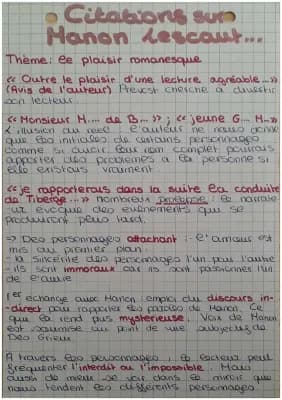 Citations sur
Manon Lescaut...
Thème: Le plaisir romanesque
« Outre le plaisir d'une lecture agréable...»
(Avis de l'auteur) Prévost cherche à divertir
son lecteur.
« Monsieur H.... de B... » ; « jeune G... M..»
L'illusion du réel... L'auteur ne nous donne
que les initiales de certains personnages
comme si ducir leur nom complet pourrais
apporter des problèmes à la personne si
elle existais vraiment.
« je rapporterais dans la suite la conduite
de Tiberge...» Nombreux prolepse : le narrate-
ur évoque des évènements qui se
produiront plus tard.
⇒ Des personnages attachant : - L'amour est
mis au premier plan
- la sincérité des personnages l'un pour l'autre
- ils sont immoraux car ils sont passionnés l'un
de l'autre
1er échange avec Manon, emploi du discours in-
-direct pour rapporter les paroles de Manon. Ce
qui la rend plus mystérieuse. Voix de Manon
est soumise au point de vue subjectif de
Des Grieux
À travers les personnages, le lecteur peut
fréquenter l'interdit ou l'impossible. Mais
aussi de mieux se voir dans le miroir que
nous tendent les différents personnages.